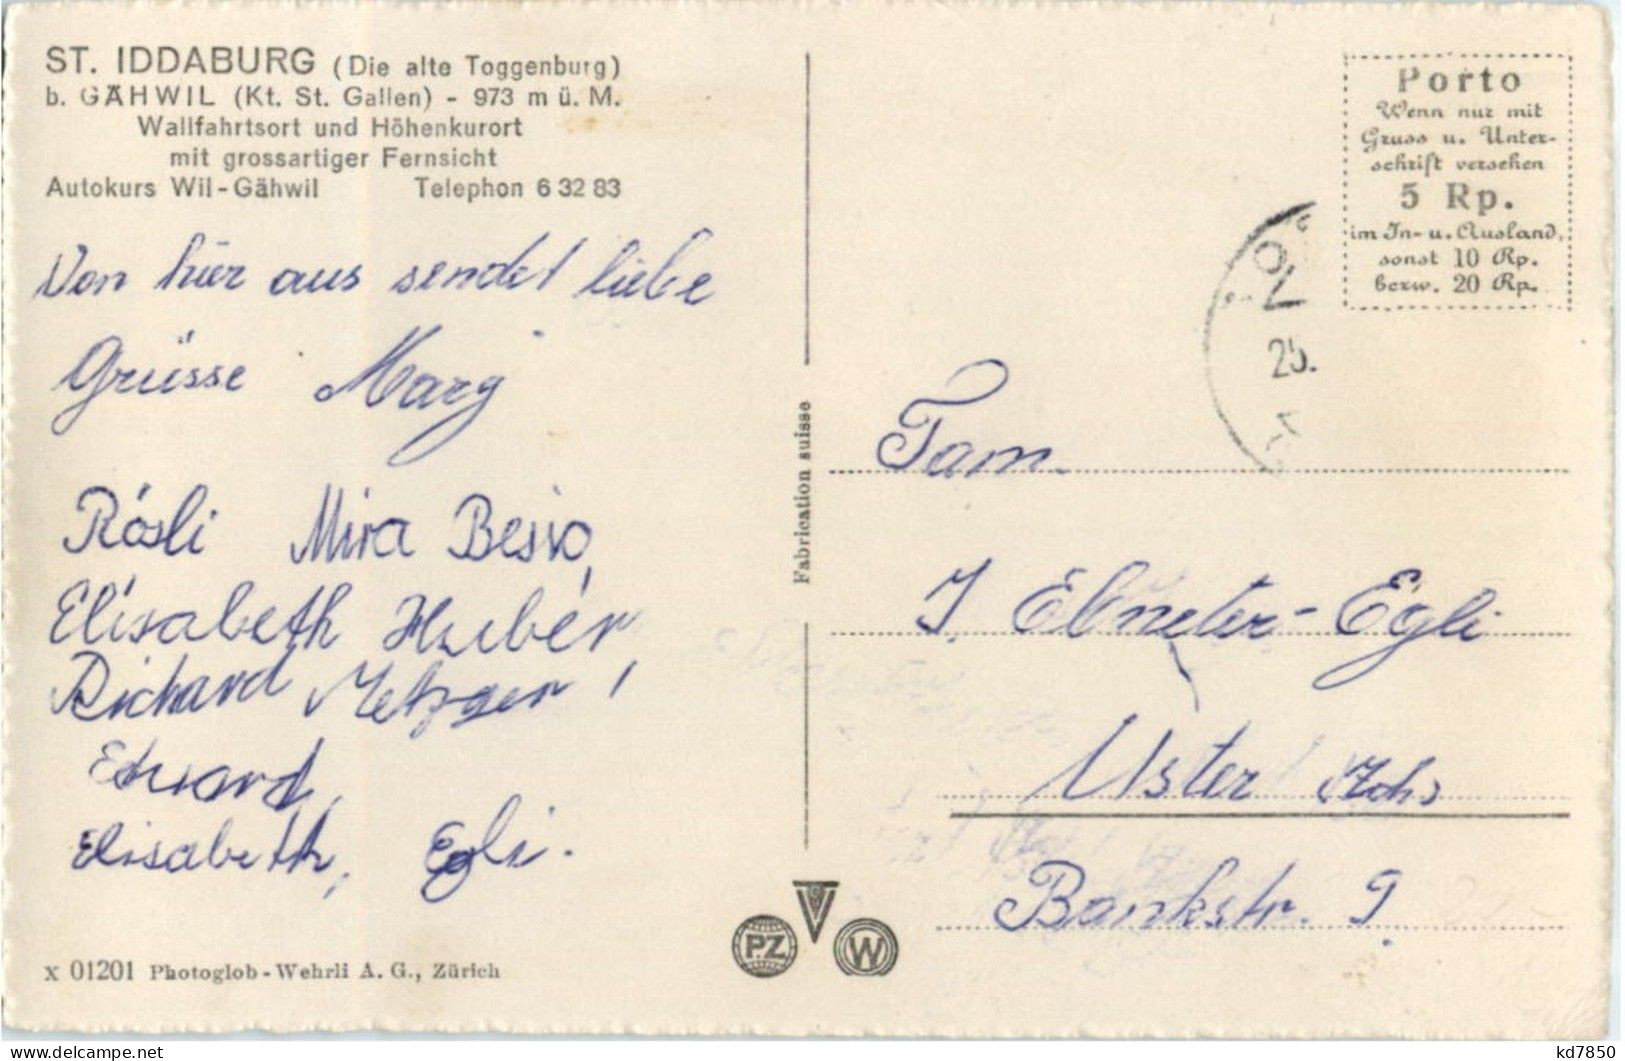 ST. IDDABURG (Die alte Toggenburg)
b. GÄHWIL (Kt. St. Gallen) - 973 m ü. M.
Wallfahrtsort und Höhenkurort
mit grossartiger Fernsicht
Autokurs Wil-Gähwil Telephon 6 32 83
Von hier aus sendet liebe
Grüsse Marg
Rösli Mira
Elisabeth Huber,
Richard Metzger,
Eduard,
Elisabeth, Egli.
x 01201 Photoglob-Wehrli A. G., Zürich
Fabrication suisse
P.Z
W
Porto
Wenn nur mit
Gruss u. Unter-
schrift versehen
5 Rp.
im In- u. Ausland,
sonst 10 Rp.
bezw. 20 Rp.
25.
Fam.
J. Ebneter-Egli
Uster (Zch)
Bankstr. 9.
www.delcampe.net
kd7850